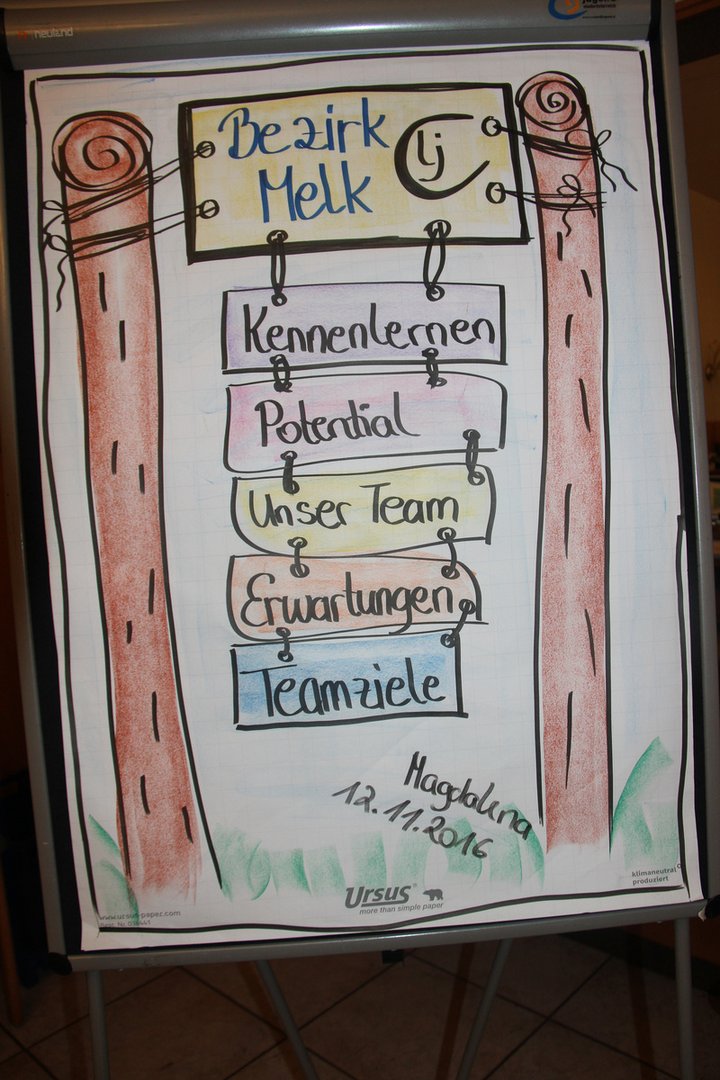 neuland
Bezirk
Melk
lj
Kennenlernen
Potential
Unser Team
Erwartungen
Teamziele
Magdalena
12.11.2016
klimaneutral
produziert
Ursus®
more than simple paper
www.ursus-paper.com